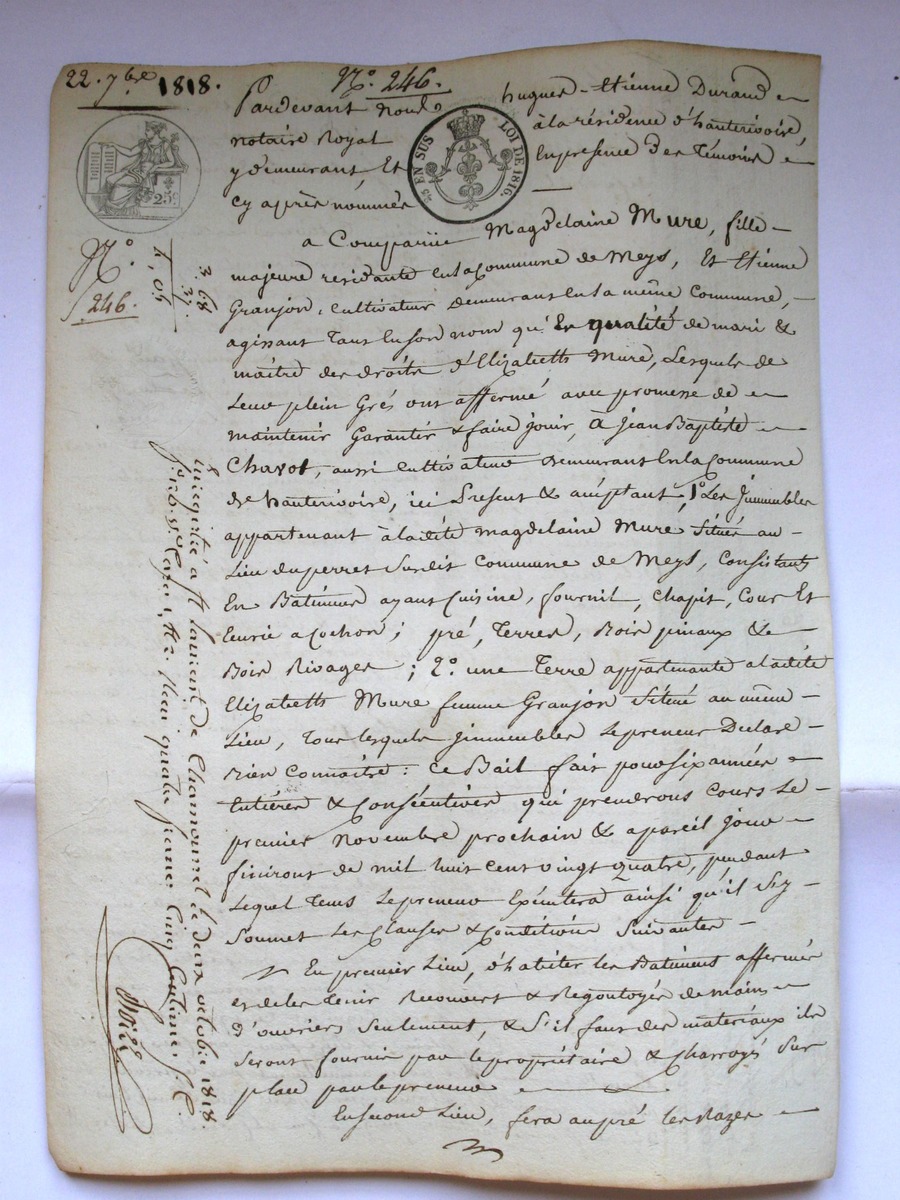 22. 7bre 1818.
N.º 246.
Pardevant Nous hugues-Etienne Durand
notaire Royal à la résidence d'hauterivoire,
y demeurant Et En presence des Témoins
cy après nommés
EN SUS LOI DE 1816.
25c
N.º
246.
3,68
37.
4,05
a Comparüe Magdelaine Mure, fille
majeure residante en la Commune de Meys, Et Etienne
Granjon, cultivateur demeurant en la même Commune,
agissant Tant En son nom qu'En qualité de mari &
maitre des droits d'Elizabeth Mure, Lesquels de
Leur plein Grés ont affermé avec promesse de
maintenir Garantir & faire jouir, à Jean Baptiste
Chavot, aussi Cultivateur demeurant En la Commune
de hauterivoire, ici Present & aceptant 1º Les Jmmeubles
appartenant à la dite Magdelaine Mure, Situés au
Lieu du perret Susdit Commune de Meys, Consistants
En Batimens ayant Cuisine, fournil, Chapit, Cour Et
Ecurie a Cochon; pré, Terres, Bois pinaux &
Bois Rivages; 2º une Terre appartenante a la dite
Elizabeth Mure femme Granjon Situé au même
Lieu, Tous lesquels Jmmeubles Le preneur Declare
Bien Connoitre: Ce Bail fait pour six années
Entières & Conséentives qui prendront Cours Le
premier Novembre prochain & a pareil jour
finiront de mil huit cent vingt quatre, pendant
Lequel Tems Le preneur Exécutera ainsi qu'il S'y
Soumet Les Clauses & Conditions Suivantes
En premier Lieu, d'habiter les Batiment affermés
et de les Tenir Recouvert & Regoutoyés de main
d'ouvriers Seulement, & S'il faut des materiaux ils
seront fournis par le propriétaire & Charroyés Sur
place par le preneur
En second Lieu, fera au pré les Razes
Enregistré à St Laurent de Chamousset le deux octobre 1818.
quatre francs Cinq Centimes